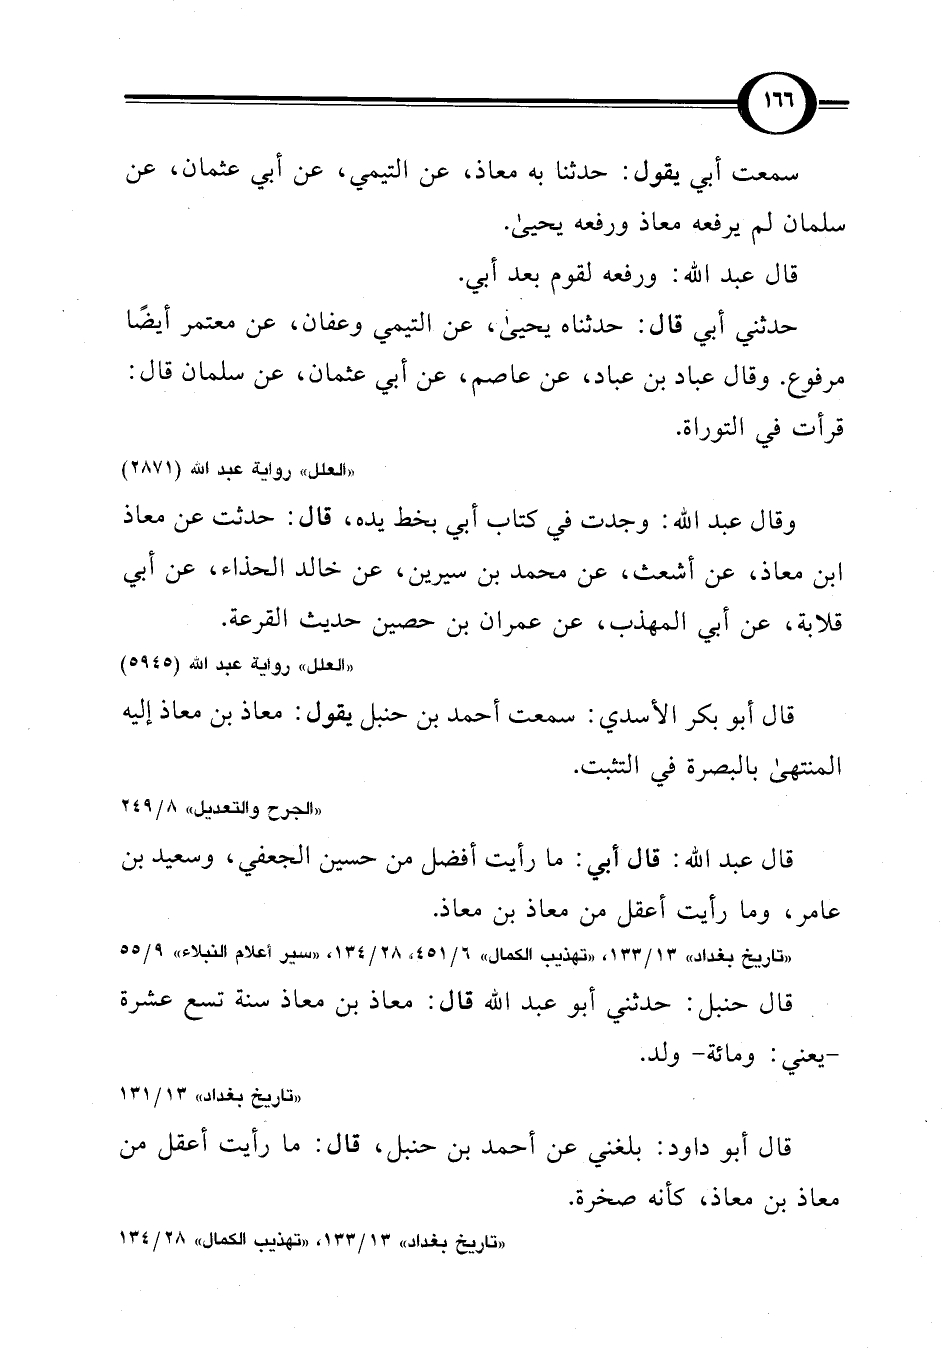 ١٦٦
سمعت أبي يقول: حدثنا به معاذ، عن التيمي، عن أبي عثمان، عن
سلمان لم يرفعه معاذ ورفعه يحيىٰ.
قال عبد الله: ورفعه لقوم بعد أبي.
حدثني أبي قال: حدثناه يحيىٰ، عن التيمي وعفان، عن معتمر أيضًا
مرفوع. وقال عباد بن عباد، عن عاصم، عن أبي عثمان، عن سلمان قال:
قرأت في التوراة.
«العلل» رواية عبد الله (٢٨٧١)
وقال عبد الله: وجدت في كتاب أبي بخط يده، قال: حدثت عن معاذ
ابن معاذ، عن أشعث، عن محمد بن سيرين، عن خالد الحذاء، عن أبي
قلابة، عن أبي المهذب، عن عمران بن حصين حديث القرعة.
«العلل» رواية عبد الله (٥٩٤٥)
قال أبو بكر الأسدي: سمعت أحمد بن حنبل يقول: معاذ بن معاذ إليه
المنتهىٰ بالبصرة في التثبت.
«الجرح والتعديل» ٢٤٩/٨
قال عبد الله: قال أبي: ما رأيت أفضل من حسين الجعفي، وسعيد بن
عامر، وما رأيت أعقل من معاذ بن معاذ.
«تاريخ بغداد» ١٣٣/١٣، «تهذيب الكمال» ٤٥١/٦، ١٣٤/٢٨، «سير أعلام النبلاء» ٥٥/٩
قال حنبل: حدثني أبو عبد الله قال: معاذ بن معاذ سنة تسع عشرة
-يعني: ومائة- ولد.
«تاريخ بغداد» ١٣١/١٣
قال أبو داود: بلغني عن أحمد بن حنبل، قال: ما رأيت أعقل من
معاذ بن معاذ، كأنه صخرة.
«تاريخ بغداد» ١٣٣/١٣، «تهذيب الكمال» ١٣٤/٢٨